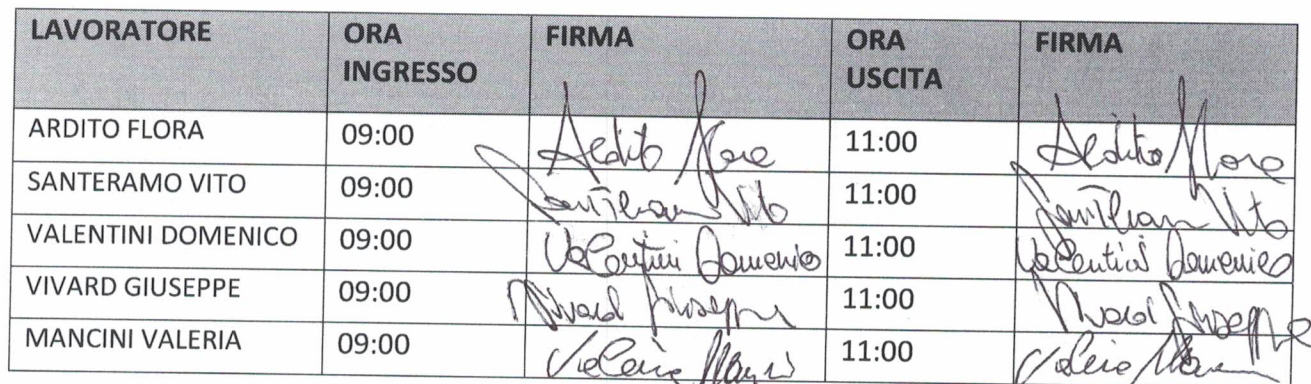 LAVORATORE ORA INGRESSO FIRMA ORA USCITA FIRMA
ARDITO FLORA 09:00 Ardito Flora 11:00 Ardito Flora
SANTERAMO VITO 09:00 Santeramo Vito 11:00 Santeramo Vito
VALENTINI DOMENICO 09:00 Valentini Domenico 11:00 Valentini Domenico
VIVARD GIUSEPPE 09:00 Vivard Giuseppe 11:00 Vivard Giuseppe
MANCINI VALERIA 09:00 Valeria Mancini 11:00 Valeria Mancini